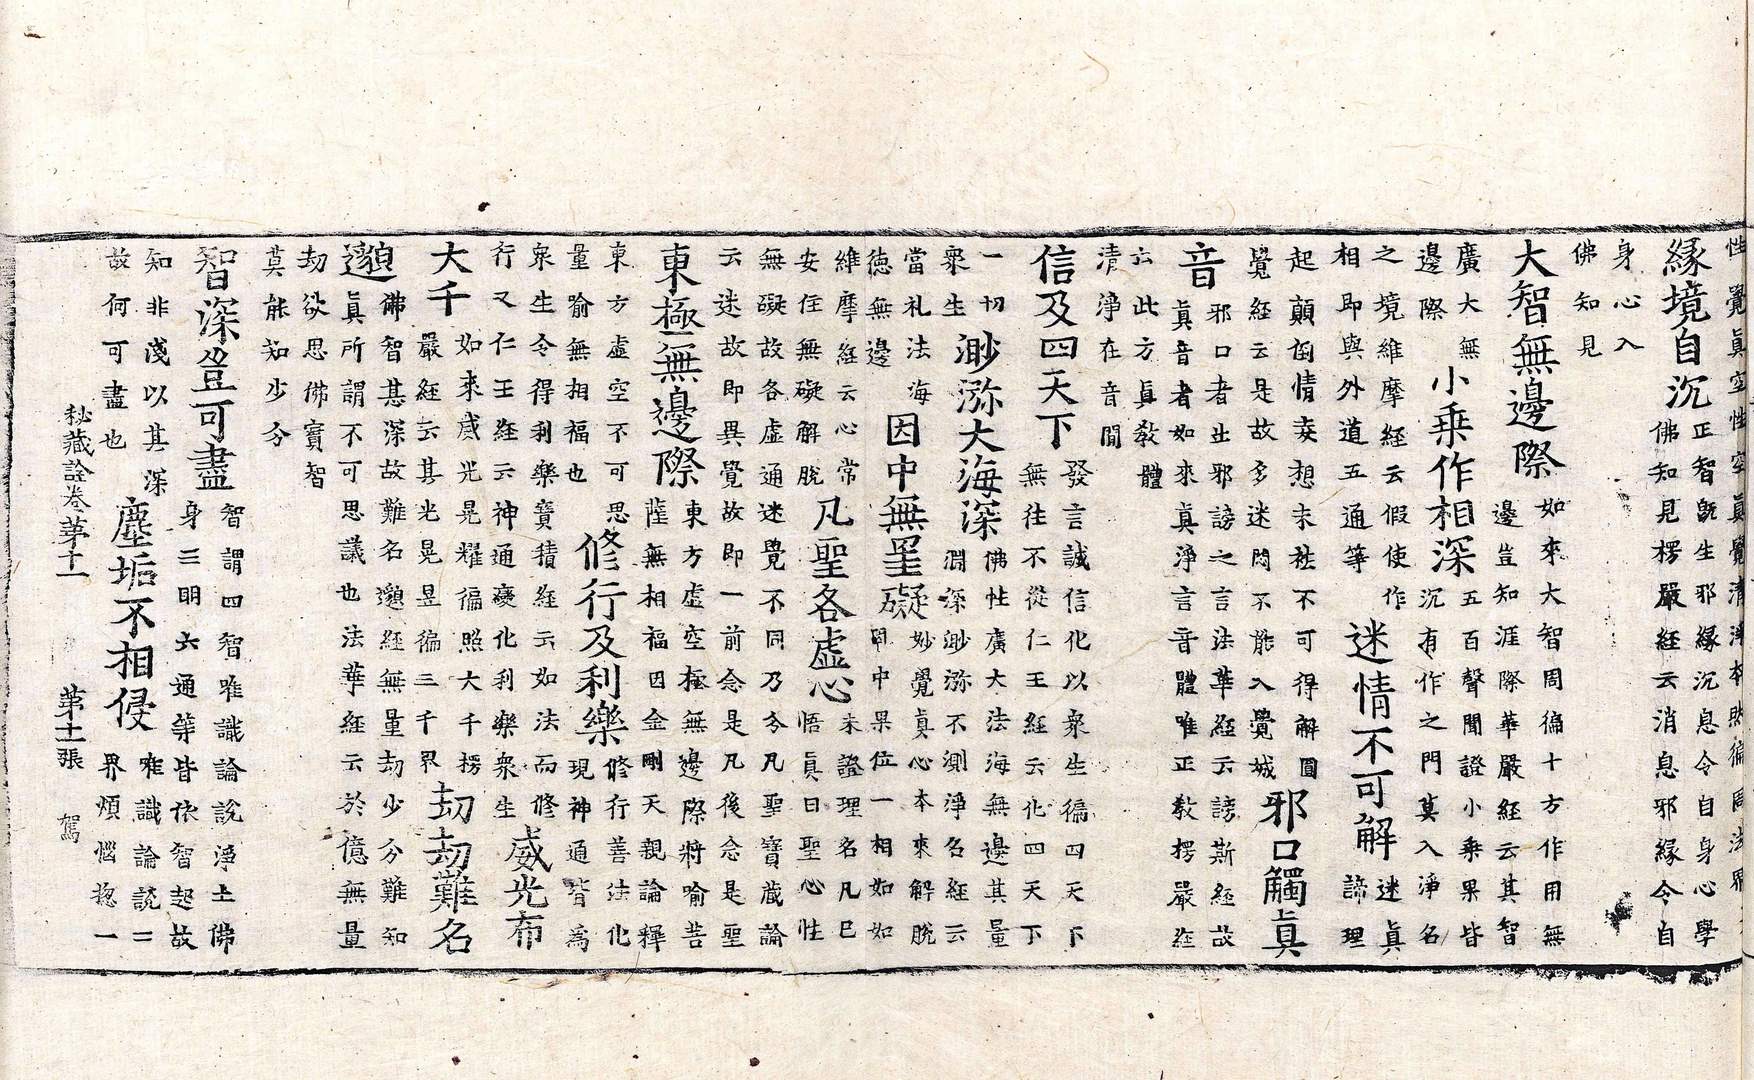 性覺真空性空真覺清淨本然徧周法界
緣境自沉 正智旣生邪緣沉息令自身心學 佛知見楞嚴経云消息邪緣令自
身心入 佛知見
大智無邊際 如來大智周徧十方作用無 邊豈知涯際華嚴經云其智
廣大無 邊際 小乗作相深 五百聲聞證小乗果皆 沉有作之門莫入淨名
之境維摩經云假使作 相即與外道五通等 迷情不可解 迷眞 諦理
起顛倒情妄想未袪不可得解圓 覺経云是故多迷悶不能入覺城 邪口觸眞
音 邪口者出邪謗之言法華經云謗斯經故 眞音者如來眞淨言音體唯正敎楞嚴経
云此方眞敎體 清淨在音聞
信及四天下 發言誠信化以衆生徧四天下 無往不從仁王經云化四天下
一切 衆生 渺瀰大海深 佛性廣大法海無邊其量 淵深渺瀰不測淨名経云
當礼法海 德無邊 因中無罣礙 妙覺眞心本來解脫 因中果位一相如如
維摩経云心常 安住無礙解脫 凡聖各虛心 未證理名凡巳 悟眞曰聖心性
無礙故各虛通迷覺不同乃令凡聖寶藏論 云迷故即異覺故即一前念是凡後念是聖
東極無邊際 東方虛空極無邊際將喻菩 薩無相福因金剛天親論釋
東方虛空不可思 量喻無相福也 修行及利樂 修行善法化 現神通皆為
衆生令得利樂寶積経云如法而修 行又仁王経云神通變化利樂衆生 威光布
大千 如來威光晃耀徧照大千楞 嚴経云其光晃昱徧三千界 劫劫難名
邈 佛智甚深故難名邈経無量劫少分難知 眞所謂不可思議也法華経云於億無量
劫欲思佛實智 莫能知少分
智深豈可盡 智謂四智唯識論說淨土佛 身三明六通等皆依智起故
知非淺以其深 故何可盡也 塵垢不相侵 唯識論說二 界煩惱惣一
秘藏詮卷第十一 第十一張 駕